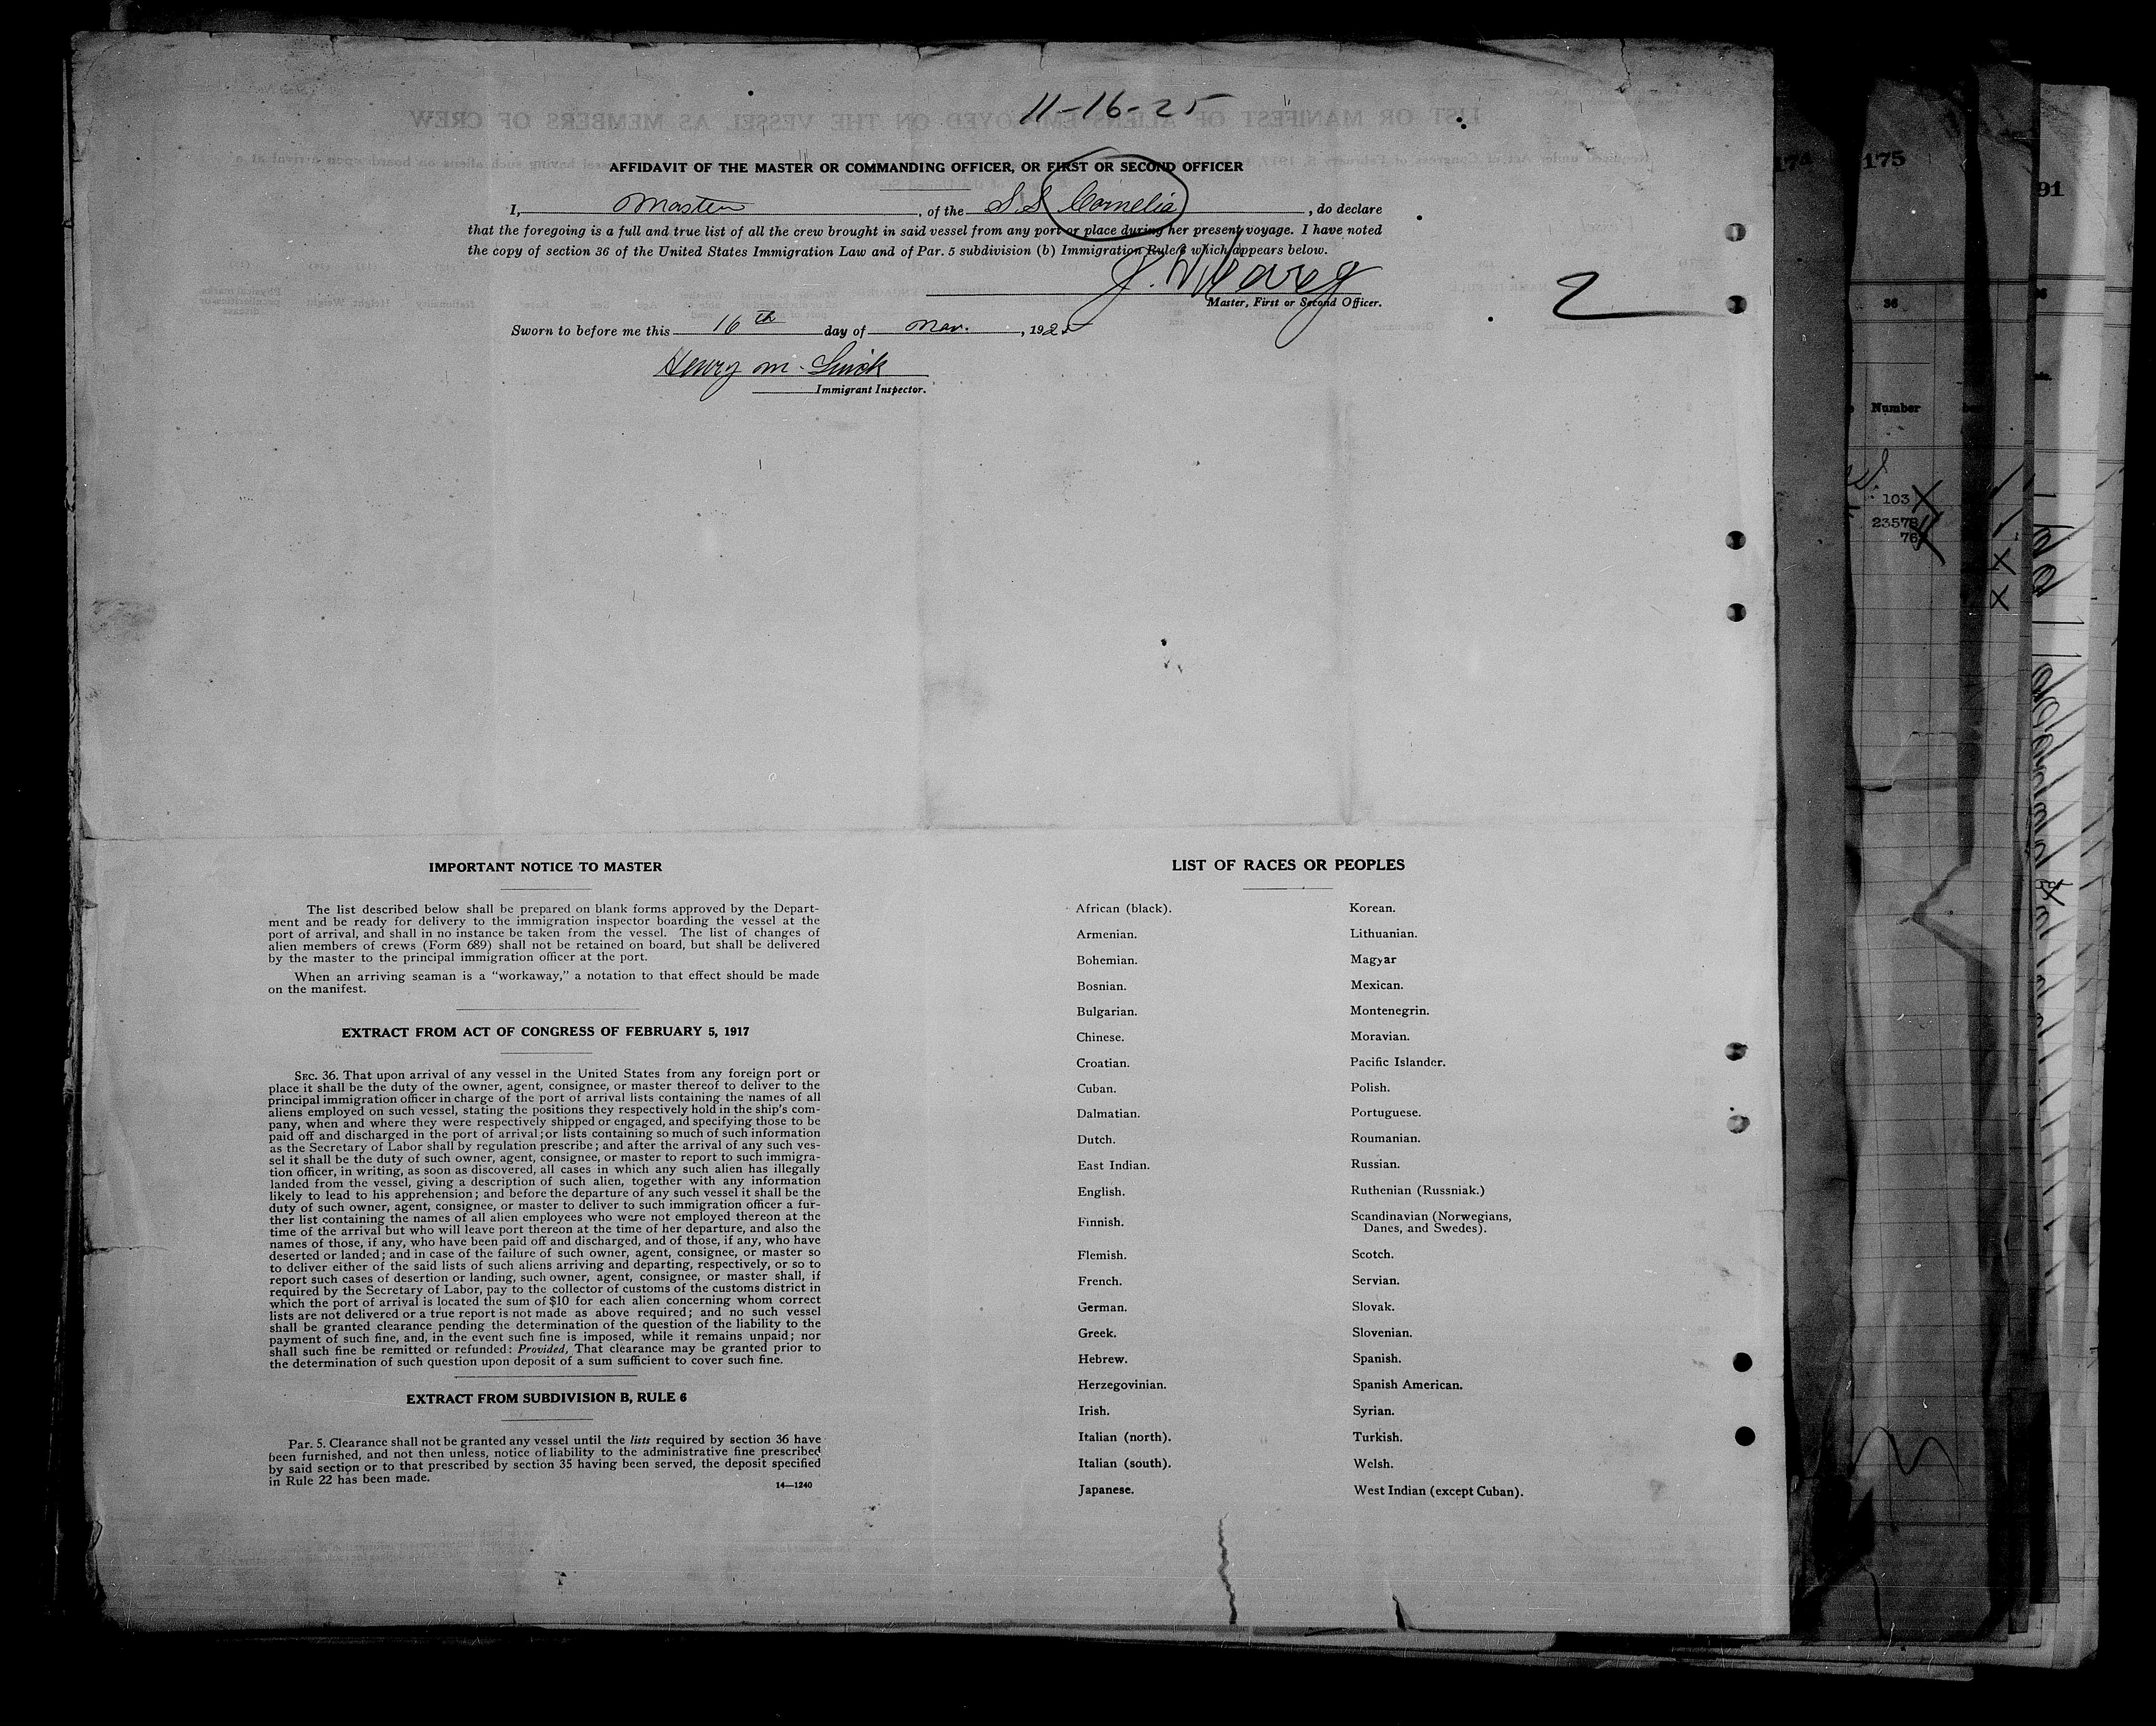 11-16-25
AFFIDAVIT OF THE MASTER OR COMMANDING OFFICER, OR FIRST OR SECOND OFFICER
I, Master, of the S.S. Cornelia, do declare
that the foregoing is a full and true list of all the crew brought in said vessel from any port or place during her present voyage. I have noted
the copy of section 36 of the United States Immigration Law and of Par. 5 subdivision (b) Immigration Rules which appears below.
2
Master, First or Second Officer.
Sworn to before me this 16th day of Nov., 1925
Henry M.
Immigrant Inspector.
IMPORTANT NOTICE TO MASTER
The list described below shall be prepared on blank forms approved by the Depart-
ment and be ready for delivery to the immigration inspector boarding the vessel at the
port of arrival, and shall in no instance be taken from the vessel. The list of changes of
alien members of crews (Form 689) shall not be retained on board, but shall be delivered
by the master to the principal immigration officer at the port.
When an arriving seaman is a "workaway," a notation to that effect should be made
on the manifest.
EXTRACT FROM ACT OF CONGRESS OF FEBRUARY 5, 1917
SEC. 36. That upon arrival of any vessel in the United States from any foreign port or
place it shall be the duty of the owner, agent, consignee, or master thereof to deliver to the
principal immigration officer in charge of the port of arrival lists containing the names of all
aliens employed on such vessel, stating the positions they respectively hold in the ship's com-
pany, when and where they were respectively shipped or engaged, and specifying those to be
paid off and discharged in the port of arrival; or lists containing so much of such information
as the Secretary of Labor shall by regulation prescribe; and after the arrival of any such ves-
sel it shall be the duty of such owner, agent, consignee, or master to report to such immigra-
tion officer, in writing, as soon as discovered, all cases in which any such alien has illegally
landed from the vessel, giving a description of such alien, together with any information
likely to lead to his apprehension; and before the departure of any such vessel it shall be the
duty of such owner, agent, consignee, or master to deliver to such immigration officer a fur-
ther list containing the names of all alien employees who were not employed thereon at the
time of the arrival but who will leave port thereon at the time of her departure, and also the
names of those, if any, who have been paid off and discharged, and of those, if any, who have
deserted or landed; and in case of the failure of such owner, agent, consignee, or master so
to deliver either of the said lists of such aliens arriving and departing, respectively, or so to
report such cases of desertion or landing, such owner, agent, consignee, or master shall, if
required by the Secretary of Labor, pay to the collector of customs of the customs district in
which the port of arrival is located the sum of $10 for each alien concerning whom correct
lists are not delivered or a true report is not made as above required; and no such vessel
shall be granted clearance pending the determination of the question of the liability to the
payment of such fine, and, in the event such fine is imposed, while it remains unpaid; nor
shall such fine be remitted or refunded: Provided, That clearance may be granted prior to
the determination of such question upon deposit of a sum sufficient to cover such fine.
EXTRACT FROM SUBDIVISION B, RULE 6
Par. 5. Clearance shall not be granted any vessel until the lists required by section 36 have
been furnished, and not then unless, notice of liability to the administrative fine prescribed
by said section or to that prescribed by section 35 having been served, the deposit specified
in Rule 22 has been made.
14—1240
LIST OF RACES OR PEOPLES
African (black).
Armenian.
Bohemian.
Bosnian.
Bulgarian.
Chinese.
Croatian.
Cuban.
Dalmatian.
Dutch.
East Indian.
English.
Finnish.
Flemish.
French.
German.
Greek.
Hebrew.
Herzegovinian.
Irish.
Italian (north).
Italian (south).
Japanese.
Korean.
Lithuanian.
Magyar
Mexican.
Montenegrin.
Moravian.
Pacific Islander.
Polish.
Portuguese.
Roumanian.
Russian.
Ruthenian (Russniak.)
Scandinavian (Norwegians,
Danes, and Swedes).
Scotch.
Servian.
Slovak.
Slovenian.
Spanish.
Spanish American.
Syrian.
Turkish.
Welsh.
West Indian (except Cuban).
175
91
36
Number
103